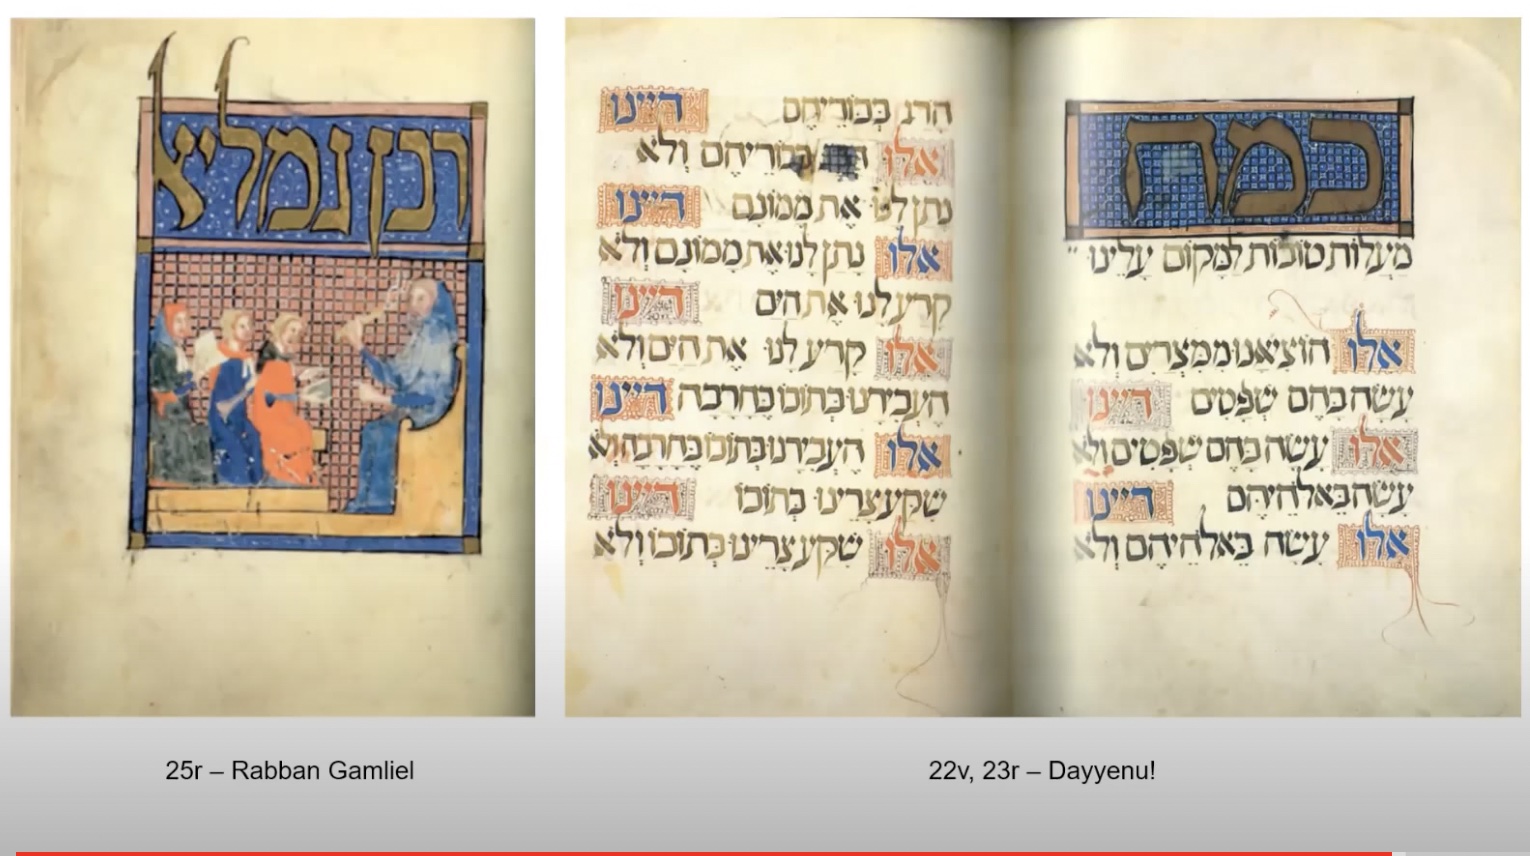 רבן גמליאל
25r – Rabban Gamliel
כמה
מעלות טובות למקום עלינו
אלו הוציאנו ממצרים ולא
עשה בהם שפטים דיינו
אלו עשה בהם שפטים ולא
עשה באלהיהם דיינו
אלו עשה באלהיהם ולא
הרג בכוריהם דיינו
אלו בכוריהם ולא
נתן לנו את ממונם דיינו
אלו נתן לנו את ממונם ולא
קרע לנו את הים דיינו
אלו קרע לנו את הים ולא
העבירנו בתוכו בחרבה דיינו
אלו העבירנו בתוכו בחרבה ולא
שקע צרינו בתוכו דיינו
אלו שקע צרינו בתוכו ולא
22v, 23r – Dayyenu!